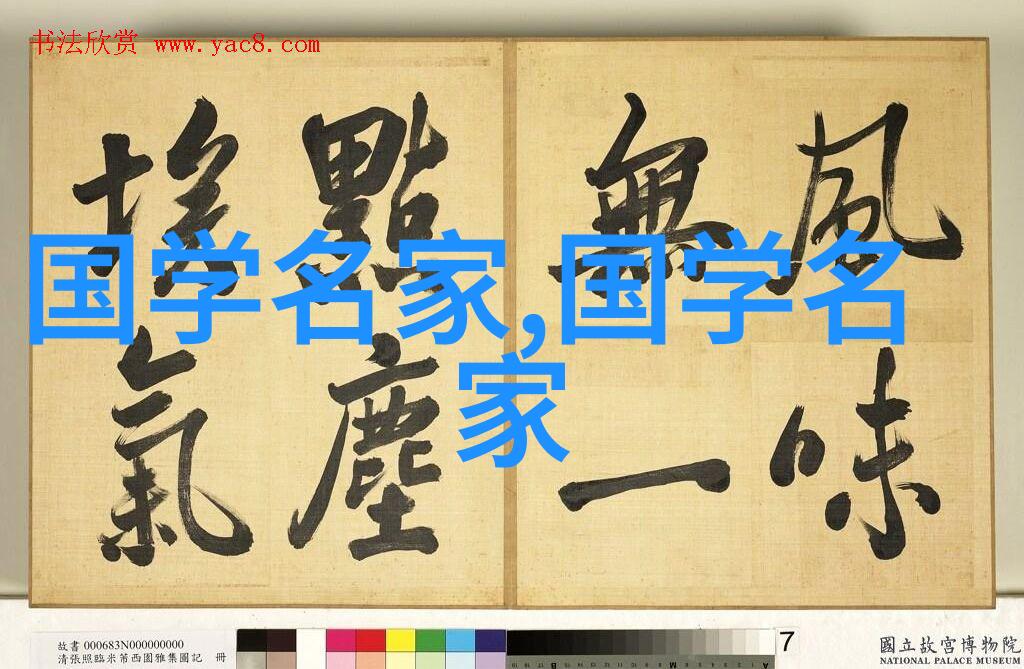 书法欣赏 www.yac8.com
風味
無一
點塵
埃氣
国学名家,国学名
家
故書 000683N000000000
清張照臨米芾西園雅集圖記 冊
7
國立故宮博物院
NATIONAL PALACE MUSEUM